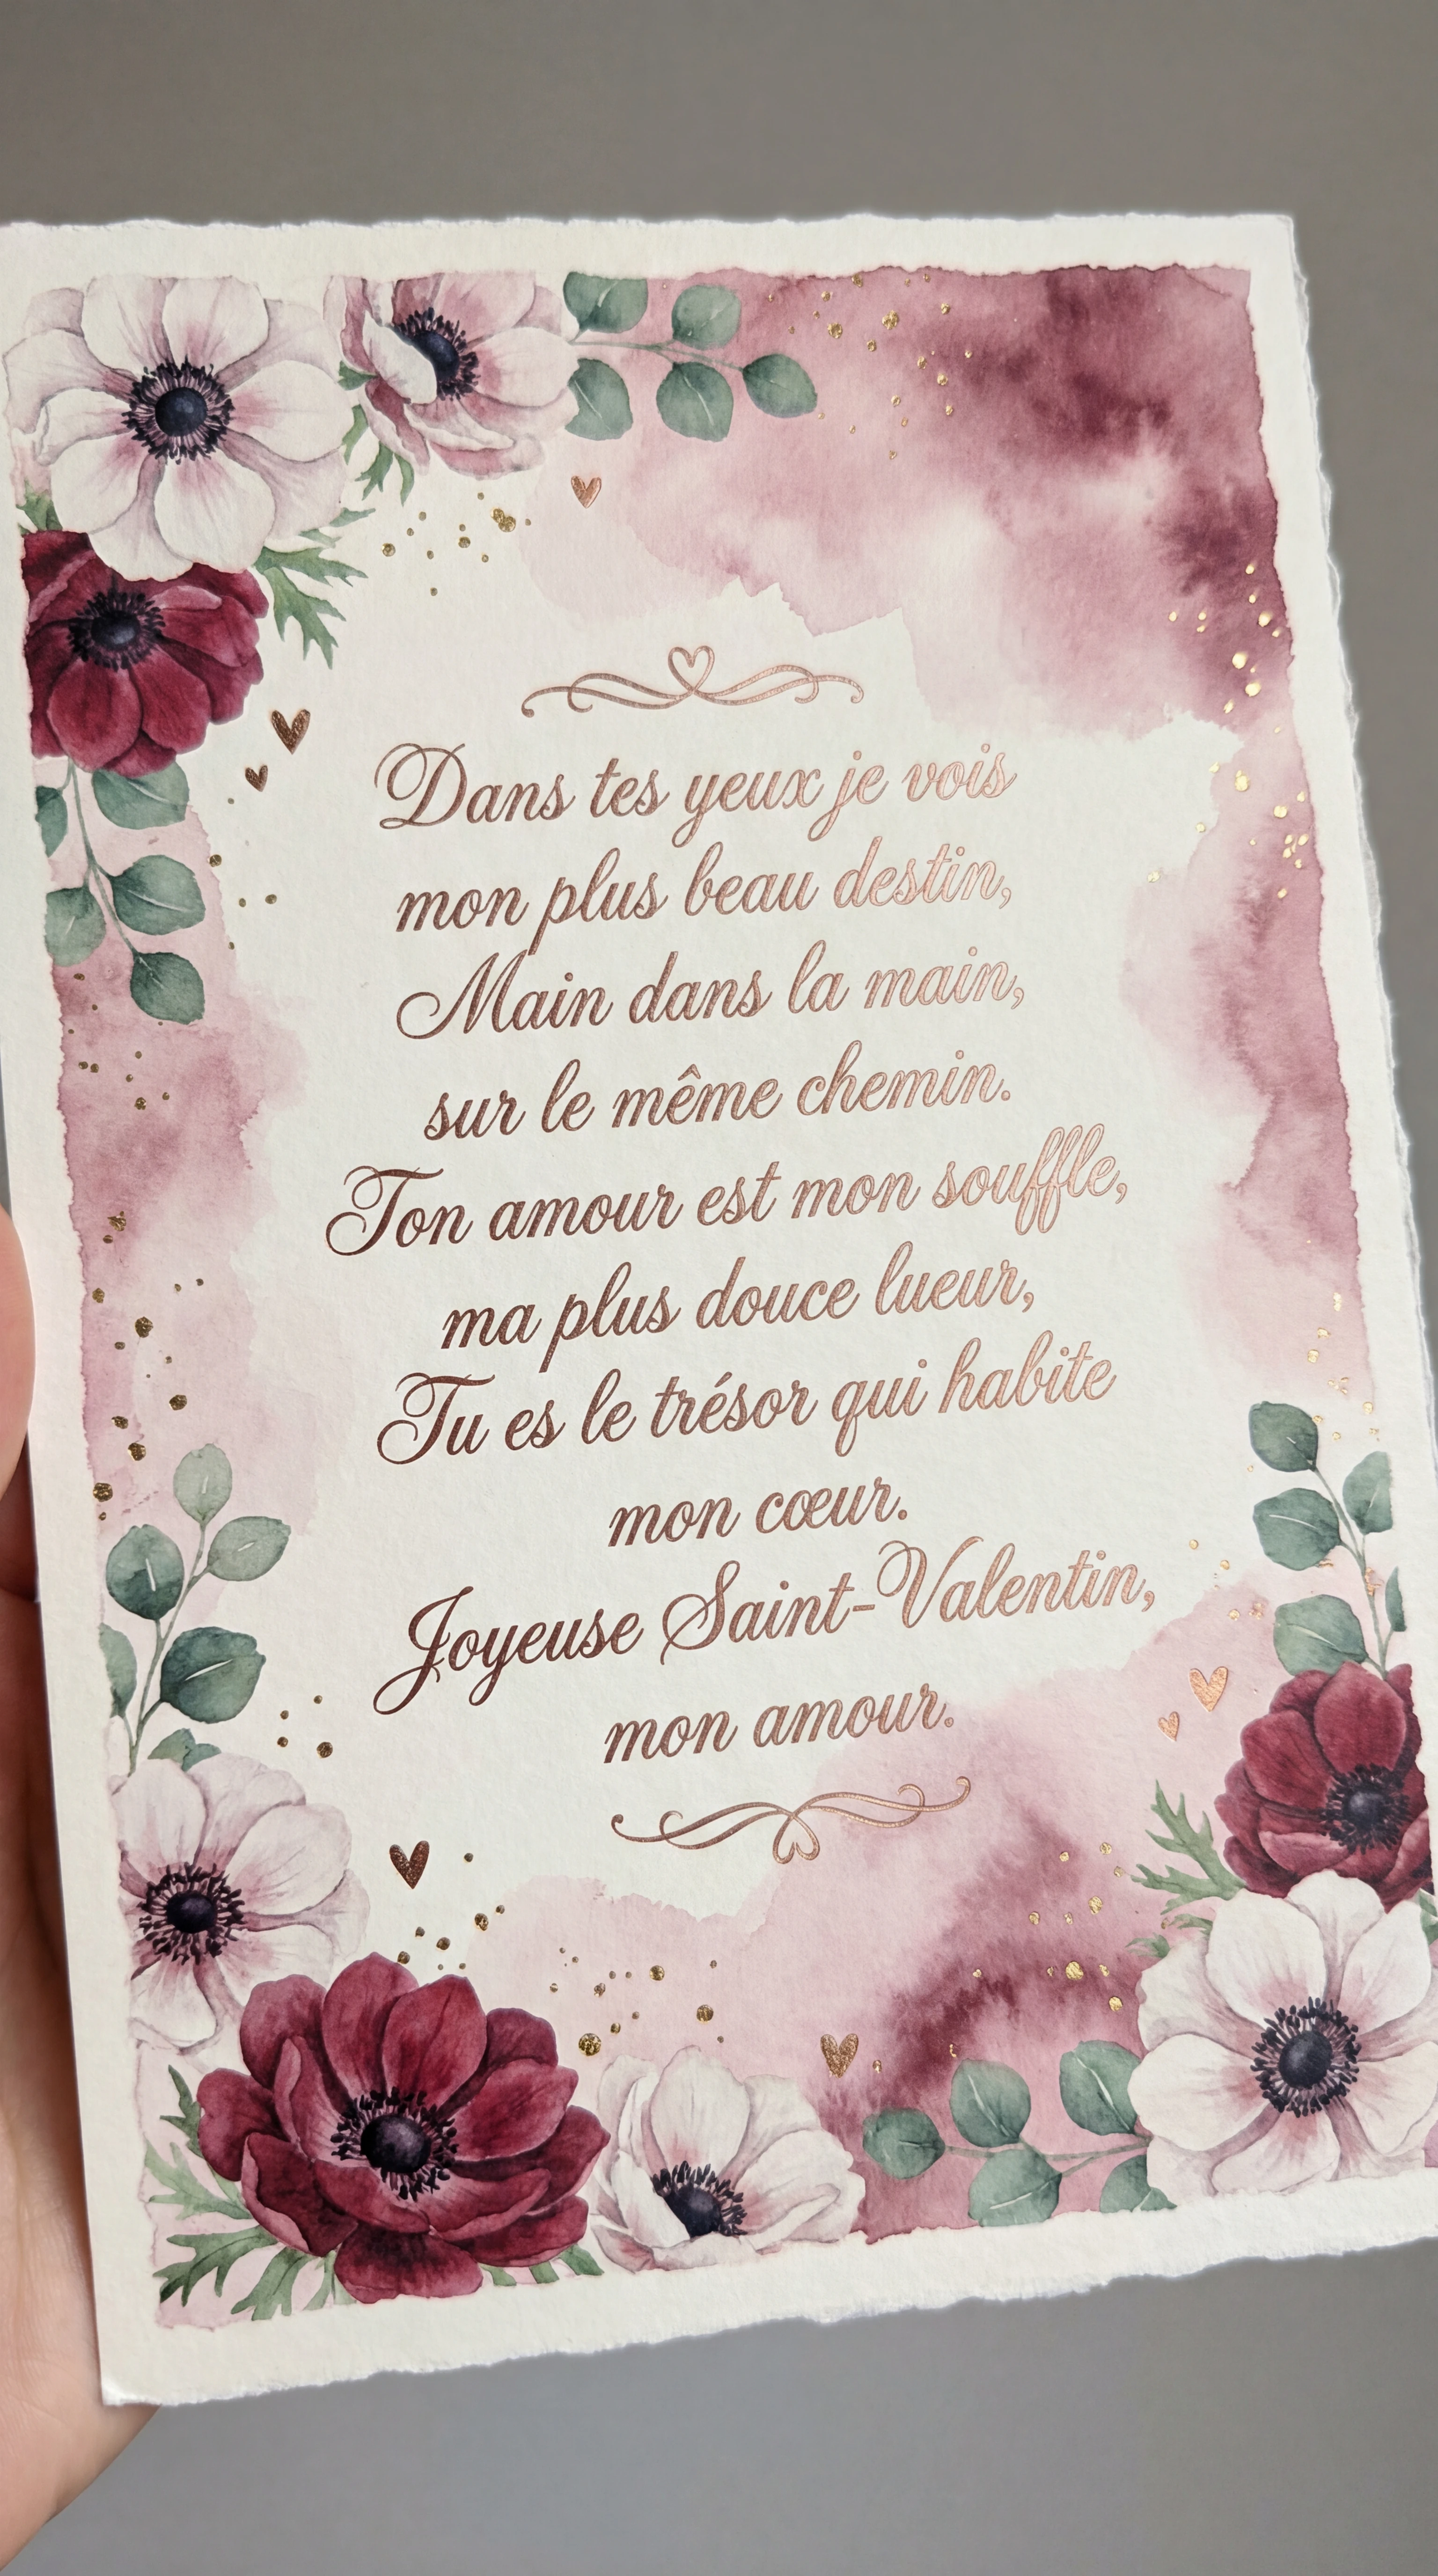 Dans tes yeux je vois
mon plus beau destin,
Main dans la main,
sur le même chemin.
Ton amour est mon souffle,
ma plus douce lueur,
Tu es le trésor qui habite
mon cœur.
Joyeuse Saint-Valentin,
mon amour.